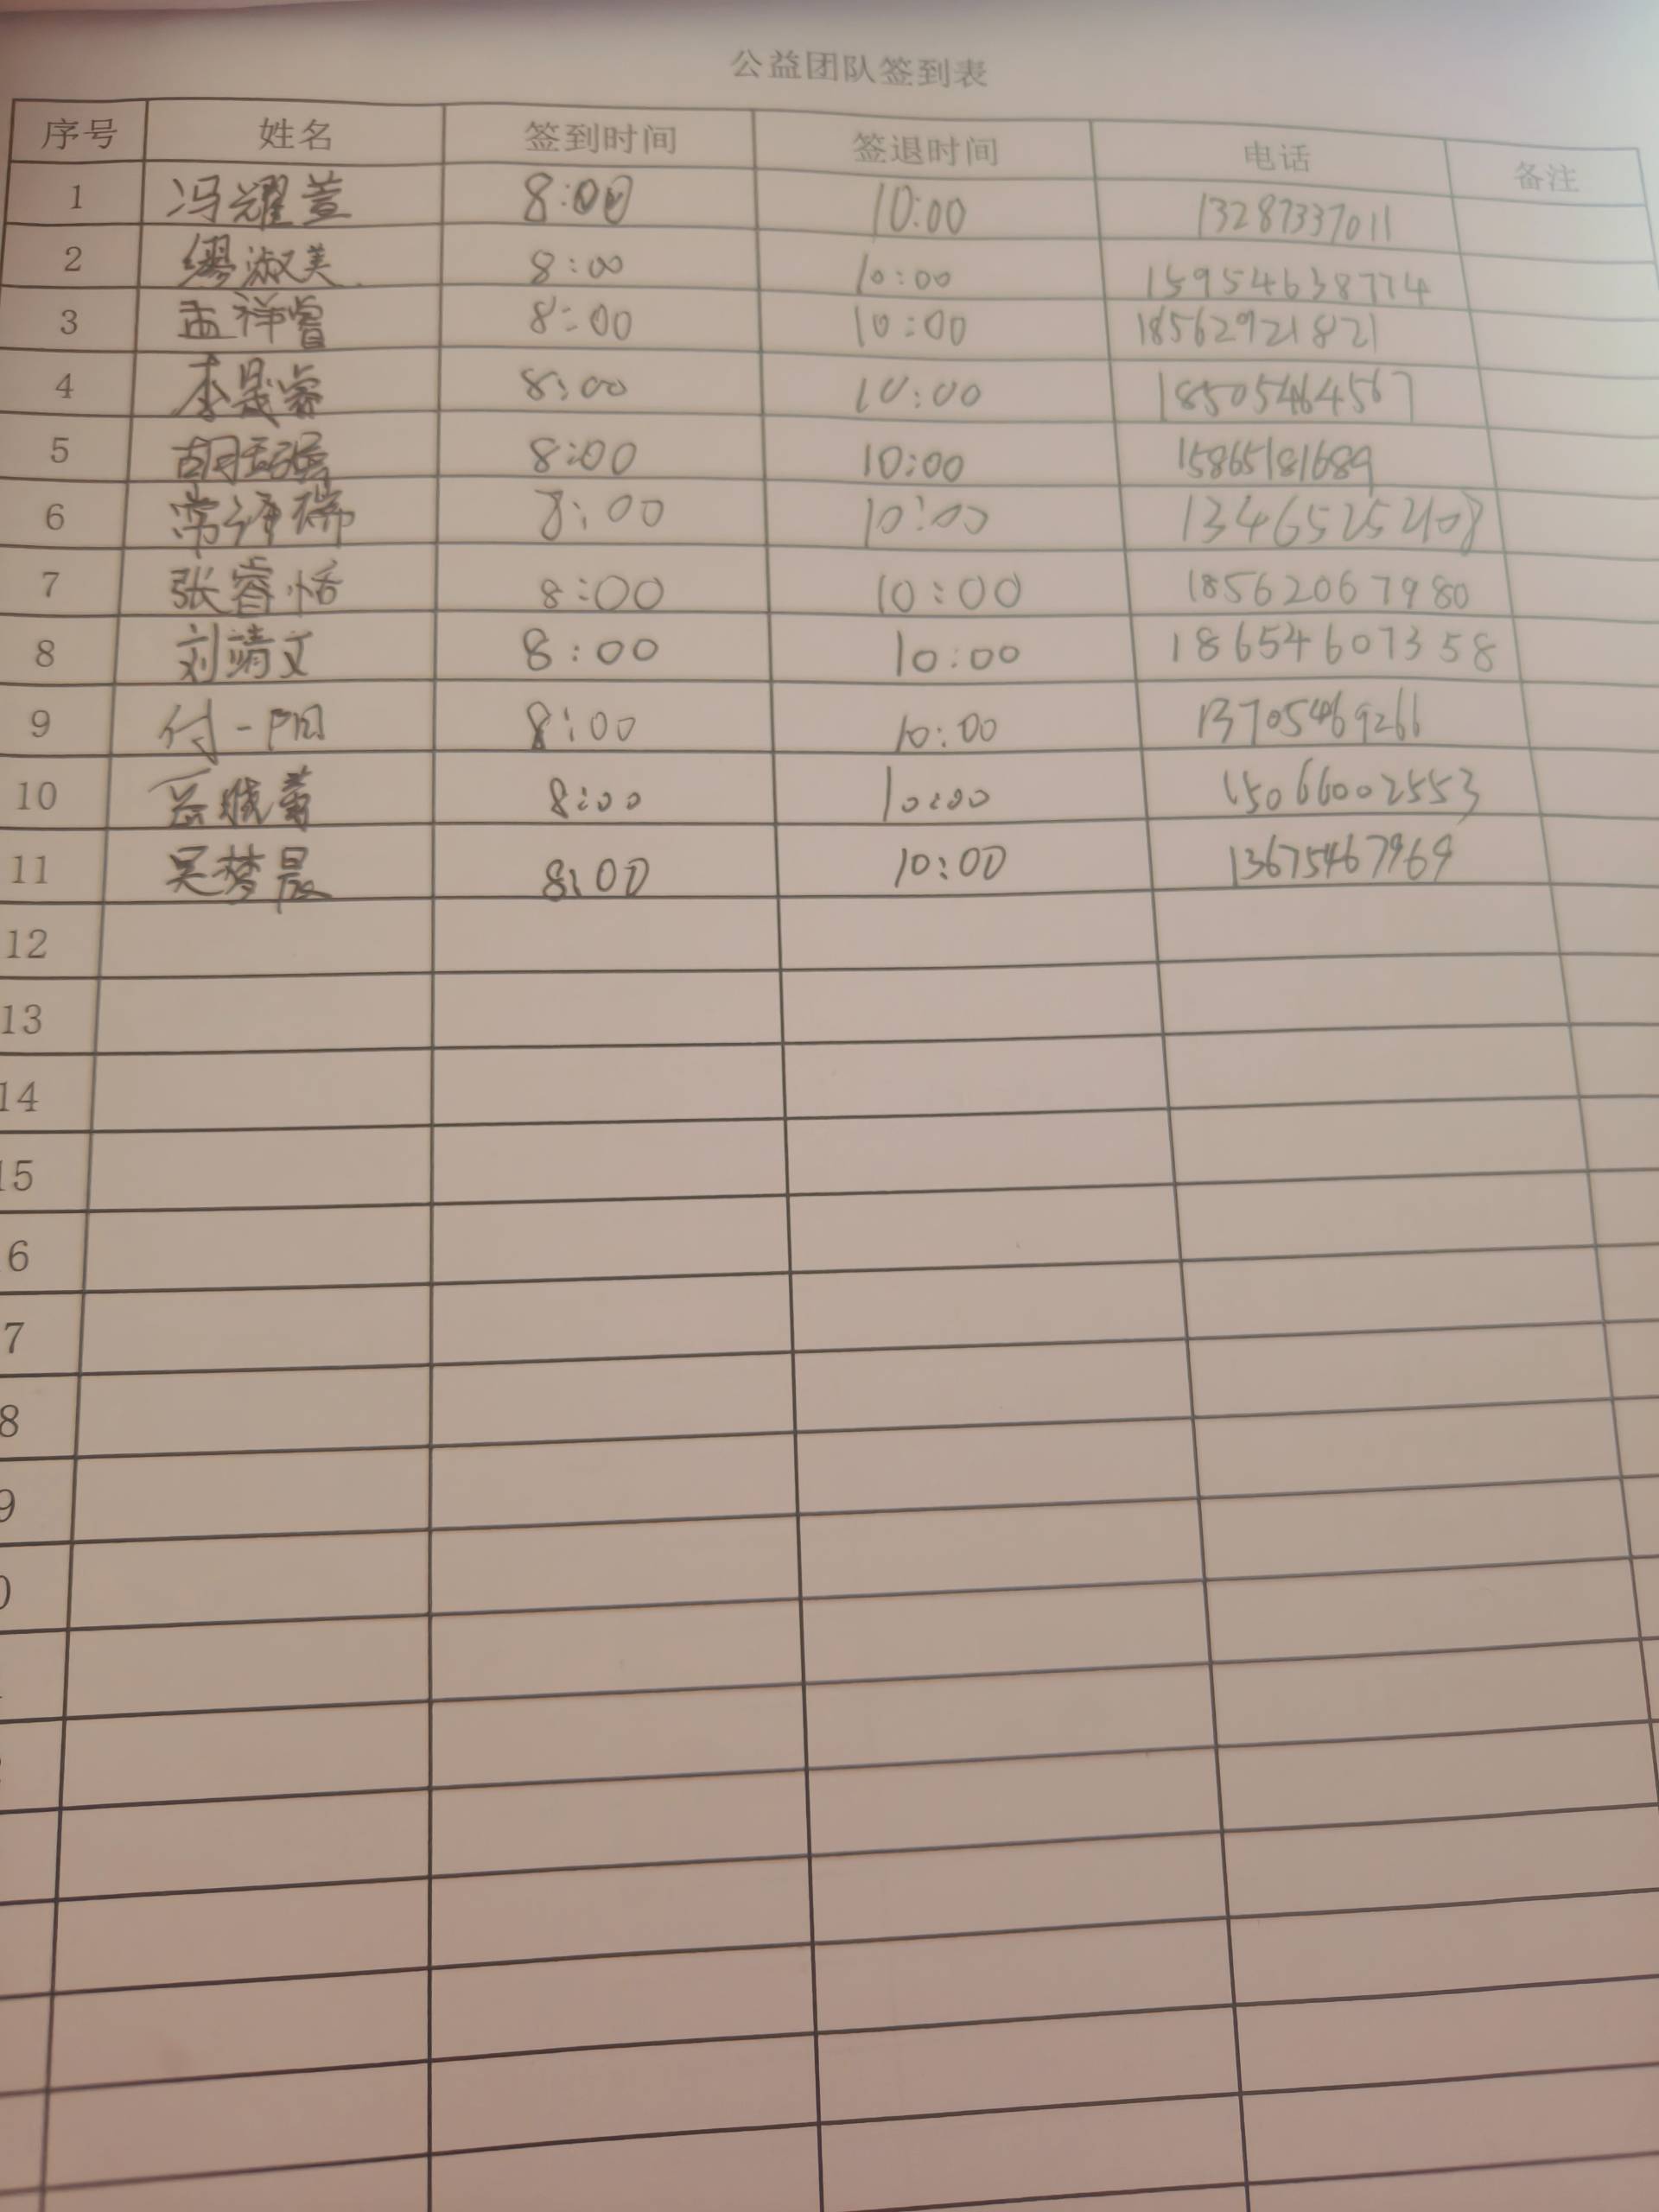 公益团队签到表
序号 姓名 签到时间 签退时间 电话 备注
1 冯耀萱 8:00 10:00 13287337011
2 缪淑美 8:00 10:00 15954638774
3 孟祥睿 8:00 10:00 18562921821
4 李晟睿 8:00 10:00 18505464567
5 胡 8:00 10:00 15865181689
6 常 瑞 8:00 10:00 13465252408
7 张睿恬 8:00 10:00 18562067980
8 刘靖文 8:00 10:00 18654607358
9 付一阳 8:00 10:00 13705469266
10 岳晓菁 8:00 10:00 15066002553
11 吴梦晨 8:00 10:00 13675467969
12
13
14
15
6
7
8
9
0